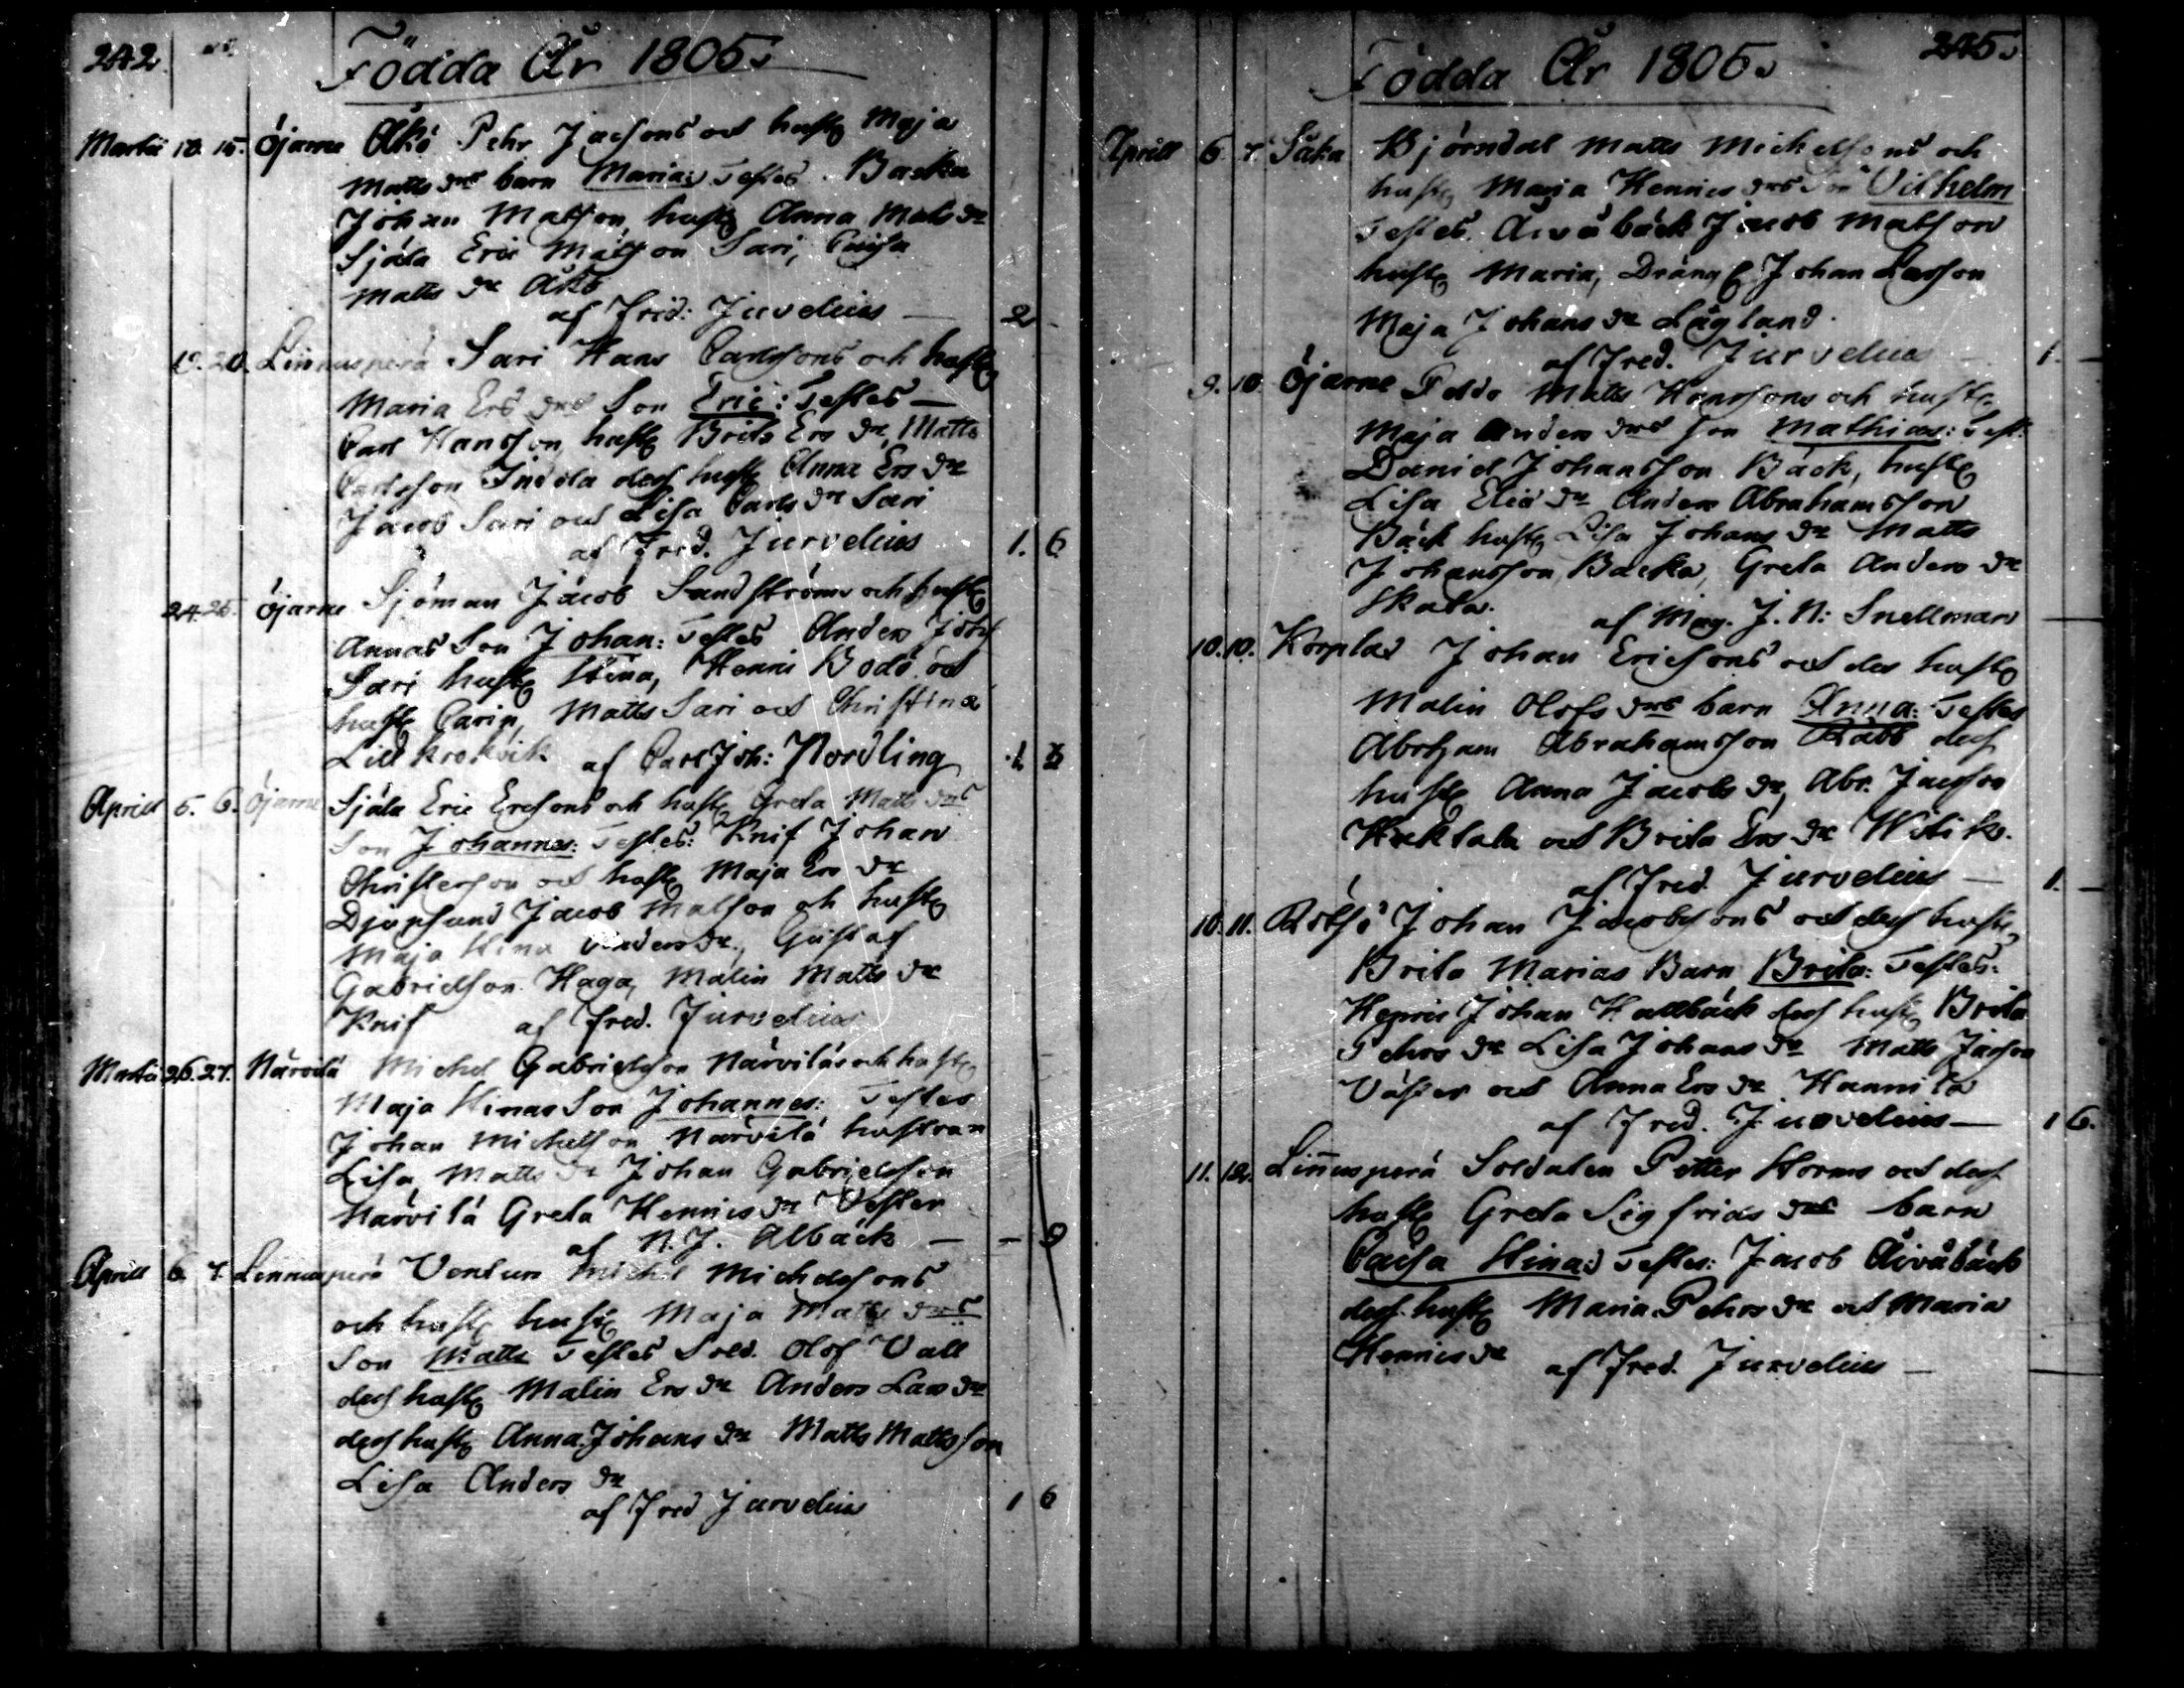 242
Födda År 1805.
Martii 18. 15. Öjarne Åkö Pehr Jacsons och hustr Maja
Matts drs barn Maria: Testes Backa
Johan Matson hustr Anna Mats dr
Själa Eric Matson Sari, Caisa
Matts dr Åkö
af Fred: Jurvelius — 2
19. 20. Linnusperä Sari Hans Carlssons och hustr
Maria Ers drs Son Eric: Testes —
Carl Hansson, hustr Brita Ers dr, Matts
Carlsson Indola dess hustr Anna Ers dr
Jacob Sari och Lisa Carls dr Sari
af Fred. Jurvelius 1. 6
24. 25. Öjarne Sjöman Jacob Sandströms och hustr
Annas Son Johan: Testes Anders Johs
Sari hustr Stina, Henric Bodö och
hustr Carin, Matts Sari och Christina
Lill Krokvik af Carl Joh: Nordling
Aprill 5. 6. Öjarne Själa Eric Ersons och hustr Greta Matts drs
Son Johannes: Testes: Knif Johan
Christerson och hustr Maja Ers dr
Djupsund Jacob Matson och hustr
Maja Stina Anders dr, Gustaf
Gabrielson Haga, Malin Matts dr
Knif af Fred. Jurvelius
Martii 26. 27. Närvilä Michel Gabrielsson Närviläs och hustr
Maja Stinas Son Johannes: Testes
Johan Michelson Närvilä hustrun
Lisa Matts dr Johan Gabrielsson
Närvilä Greta Henrics dr Vester
af N. J. Albäck — — 9
Aprill 6. 7. Linnusperä Ventus Michel Michelsons
och hustr hustr Maja Matts drs
Son Matts Testes Sold. Olof Vall
dess hustr Malin Ers dr Anders Lars dr
dess hustr Anna Johans dr Matts Mattsson
Lisa Anders dr
af Fred Jurvelius 1 6
245.
Födda År 1805.
Aprill 6. 7. Såka Björndal Matts Michelsons och
hustr Maja Henrics drs Son Vilhelm
Testes. Åivåbäck Jacob Matson
hustr Maria, Dräng Johan Larsson
Maja Johans dr Lågland.
af Fred. Jurvelius — 1. —
9. 10. Öjarne Peldo Matts Hanssons och hustr
Maja Anders drs son Mathias: Test:
Daniel Johansson Bäck, hustr
Lisa Elias dr Anders Abrahamsson
Bäck hustr Lisa Johans dr Matts
Johansson Backa, Greta Anders dr
Skata. af Mag. J. N: Snellman —
10. 10. Korplax Johan Ericsons och des hustr
Malin Olofs drs barn Anna: Testes
Abraham Abrahamsson Rabb dess
hustr Anna Jacobs dr, Abr. Jacson
Hucktala och Brita Ers dr Witik.
af Fred. Jurvelius — 1. —
10. 11. Rötsö Johan Jacobsons och dess hustr
Brita Marias Barn Brita: Testes:
Henric Johan Hallbäck dess hustr Brita
Pehrs dr Lisa Johans dr Matts Jacson
Väster och Anna Ers dr Hannila
af Fred. Jurvelius — 1 6.
11. 12. Linnusperä Soldaten Petter Storms och dess
hustr Greta Sigfrids drs barn
Caisa Stina: Testes: Jacob Åivåbäck
dess hustr Maria Pehrs dr och Maria
Henrics dr af Fred. Jurvelius —